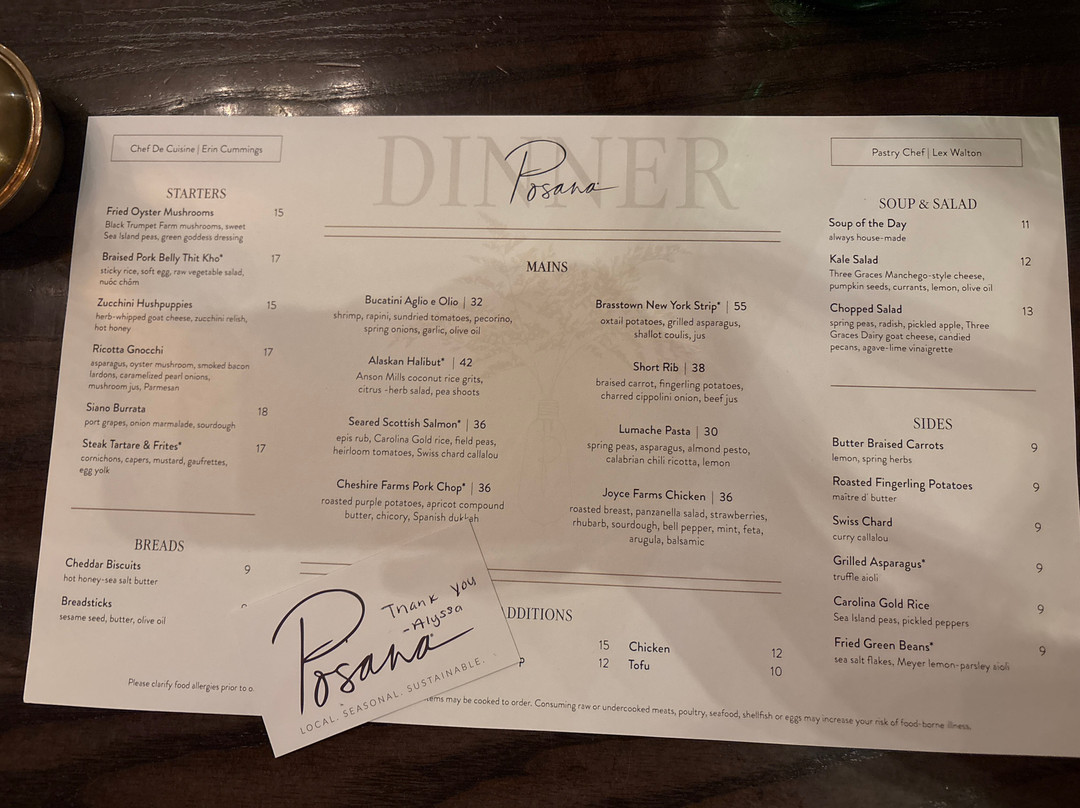 Chef De Cuisine | Erin Cummings
DINNER
Posana
Pastry Chef | Lex Walton
STARTERS
Fried Oyster Mushrooms 15
Black Trumpet Farm mushrooms, sweet
Sea Island peas, green goddess dressing
Braised Pork Belly Thit Kho* 17
sticky rice, soft egg, raw vegetable salad,
nuớc chấm
Zucchini Hushpuppies 15
herb-whipped goat cheese, zucchini relish,
hot honey
Ricotta Gnocchi 17
asparagus, oyster mushroom, smoked bacon
lardons, caramelized pearl onions,
mushroom jus, Parmesan
Siano Burrata 18
port grapes, onion marmalade, sourdough
Steak Tartare & Frites* 17
cornichons, capers, mustard, gaufrettes,
egg yolk
BREADS
Cheddar Biscuits 9
hot honey-sea salt butter
Breadsticks
sesame seed, butter, olive oil
MAINS
Bucatini Aglio e Olio | 32
shrimp, rapini, sundried tomatoes, pecorino,
spring onions, garlic, olive oil
Alaskan Halibut* | 42
Anson Mills coconut rice grits,
citrus -herb salad, pea shoots
Seared Scottish Salmon* | 36
epis rub, Carolina Gold rice, field peas,
heirloom tomatoes, Swiss chard callalou
Cheshire Farms Pork Chop* | 36
roasted purple potatoes, apricot compound
butter, chicory, Spanish dukkah
Brasstown New York Strip* | 55
oxtail potatoes, grilled asparagus,
shallot coulis, jus
Short Rib | 38
braised carrot, fingerling potatoes,
charred cippolini onion, beef jus
Lumache Pasta | 30
spring peas, asparagus, almond pesto,
calabrian chili ricotta, lemon
Joyce Farms Chicken | 36
roasted breast, panzanella salad, strawberries,
rhubarb, sourdough, bell pepper, mint, feta,
arugula, balsamic
SOUP & SALAD
Soup of the Day 11
always house-made
Kale Salad 12
Three Graces Manchego-style cheese,
pumpkin seeds, currants, lemon, olive oil
Chopped Salad 13
spring peas, radish, pickled apple, Three
Graces Dairy goat cheese, candied
pecans, agave-lime vinaigrette
SIDES
Butter Braised Carrots 9
lemon, spring herbs
Roasted Fingerling Potatoes 9
maître d' butter
Swiss Chard 9
curry callalou
Grilled Asparagus* 9
truffle aioli
Carolina Gold Rice 9
Sea Island peas, pickled peppers
Fried Green Beans* 9
sea salt flakes, Meyer lemon-parsley aioli
DDITIONS
15 Chicken 12
p 12 Tofu 10
Please clarify food allergies prior to o
tems may be cooked to order. Consuming raw or undercooked meats, poultry, seafood, shellfish or eggs may increase your risk of food-borne illness.
Thank you
-Alyssa
Posana
LOCAL. SEASONAL. SUSTAINABLE.